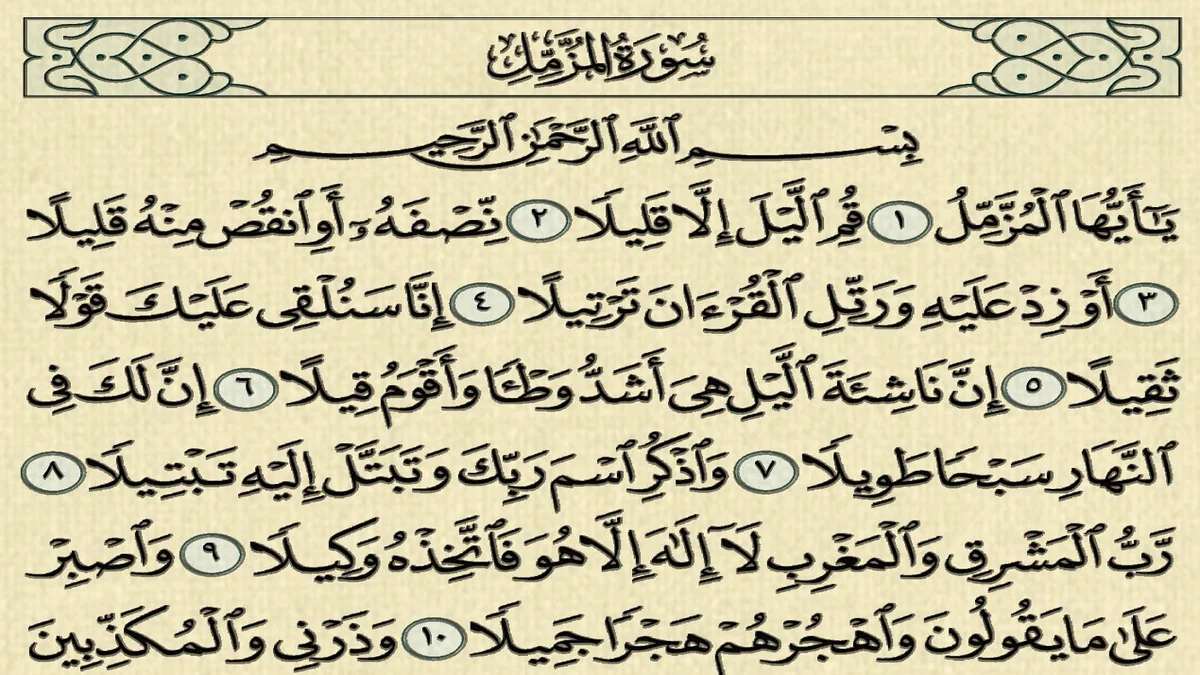 سُورَةُ المُزَّمِّلِ
بِسْمِ ٱللَّهِ ٱلرَّحْمَٰنِ ٱلرَّحِيمِ
يَٰٓأَيُّهَا ٱلْمُزَّمِّلُ ١ قُمِ ٱلَّيْلَ إِلَّا قَلِيلًا ٢ نِّصْفَهُۥٓ أَوِ ٱنقُصْ مِنْهُ قَلِيلًا
٣ أَوْ زِدْ عَلَيْهِ وَرَتِّلِ ٱلْقُرْءَانَ تَرْتِيلًا ٤ إِنَّا سَنُلْقِى عَلَيْكَ قَوْلًا
ثَقِيلًا ٥ إِنَّ نَاشِئَةَ ٱلَّيْلِ هِىَ أَشَدُّ وَطْـًٔا وَأَقْوَمُ قِيلًا ٦ إِنَّ لَكَ فِى
ٱلنَّهَارِ سَبْحًا طَوِيلًا ٧ وَٱذْكُرِ ٱسْمَ رَبِّكَ وَتَبَتَّلْ إِلَيْهِ تَبْتِيلًا ٨
رَّبُّ ٱلْمَشْرِقِ وَٱلْمَغْرِبِ لَآ إِلَٰهَ إِلَّا هُوَ فَٱتَّخِذْهُ وَكِيلًا ٩ وَٱصْبِرْ
عَلَىٰ مَا يَقُولُونَ وَٱهْجُرْهُمْ هَجْرًا جَمِيلًا ١٠ وَذَرْنِى وَٱلْمُكَذِّبِينَ